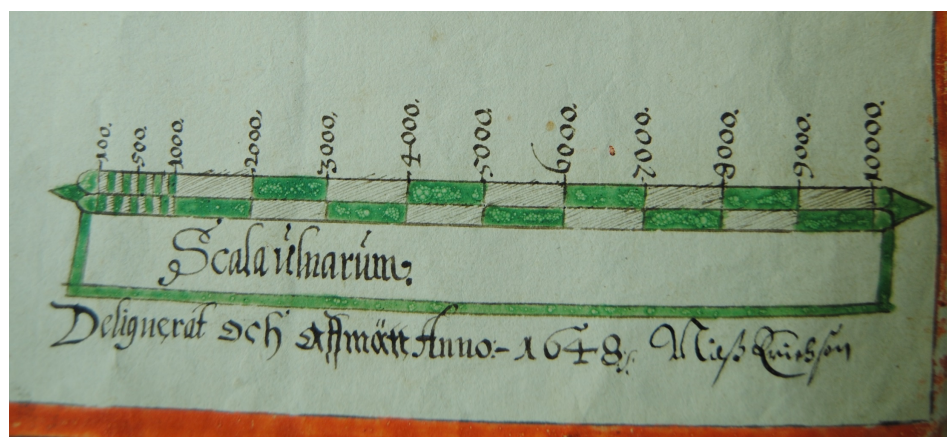 100. 500. 1000. 2000. 3000. 4000. 5000. 6000. 7000. 8000. 9000. 10000.
Scala ulnarum.
Delignerat och affmätt Anno:- 1648